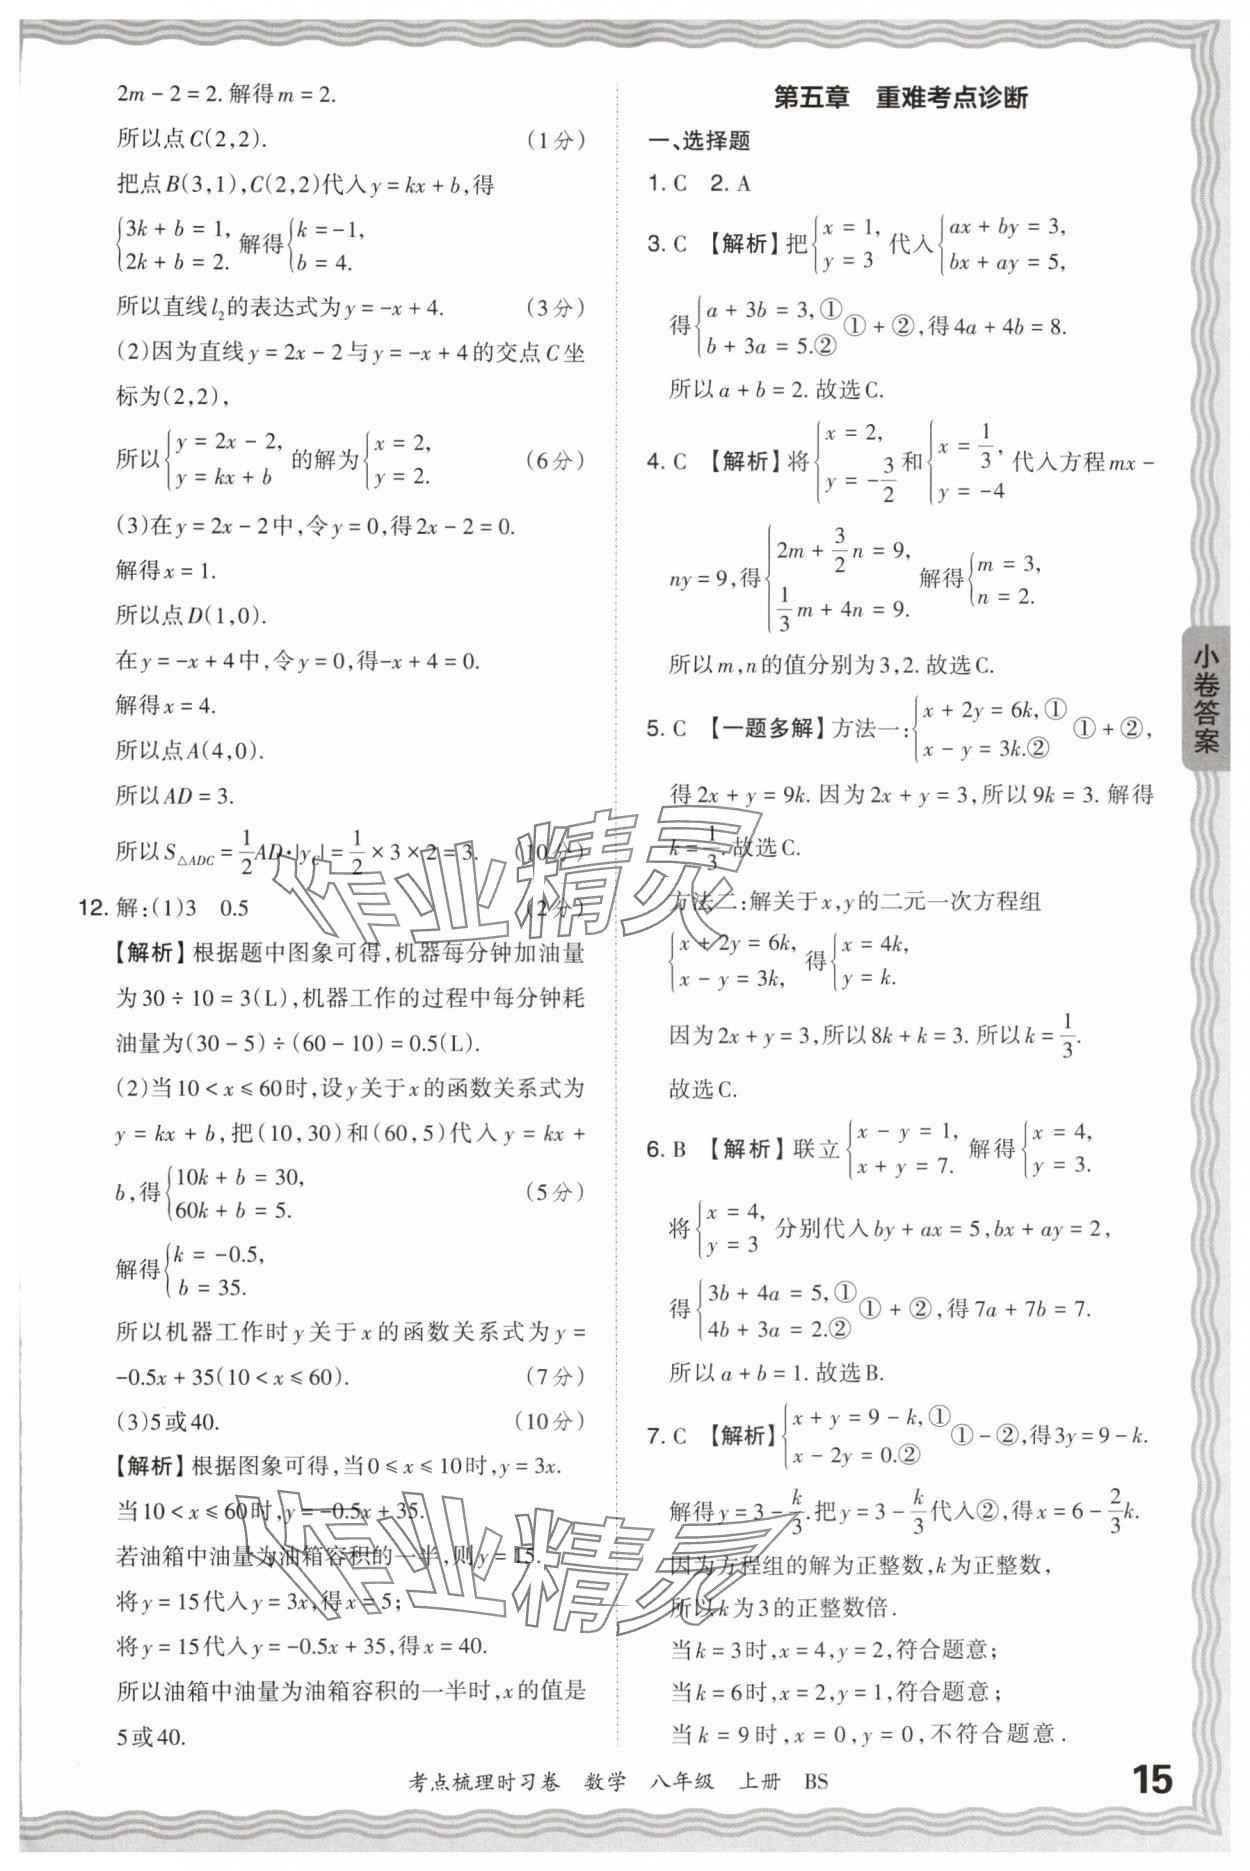 2m－2＝2. 解得m＝2.
所以点C(2,2). (1分)
把点B(3,1),C(2,2)代入y＝kx＋b,得
{3k＋b＝1, 2k＋b＝2. 解得{k＝－1, b＝4.
所以直线l₂的表达式为y＝－x＋4. (3分)
(2)因为直线y＝2x－2与y＝－x＋4的交点C坐
标为(2,2),
所以{y＝2x－2, y＝kx＋b 的解为{x＝2, y＝2. (6分)
(3)在y＝2x－2中,令y＝0,得2x－2＝0.
解得x＝1.
所以点D(1,0).
在y＝－x＋4中,令y＝0,得－x＋4＝0.
解得x＝4.
所以点A(4,0).
所以AD＝3.
所以S△ADC＝1/2AD·|y_C|＝1/2×3×2＝3. (10分)
12. 解:(1)3 0.5 (2分)
【解析】根据题中图象可得,机器每分钟加油量
为30÷10＝3(L),机器工作的过程中每分钟耗
油量为(30－5)÷(60－10)＝0.5(L).
(2)当10＜x≤60时,设y关于x的函数关系式为
y＝kx＋b,把(10,30)和(60,5)代入y＝kx＋
b,得{10k＋b＝30, 60k＋b＝5. (5分)
解得{k＝－0.5, b＝35.
所以机器工作时y关于x的函数关系式为y＝
－0.5x＋35(10＜x≤60). (7分)
(3)5或40. (10分)
【解析】根据图象可得,当0≤x≤10时,y＝3x.
当10＜x≤60时,y＝－0.5x＋35.
若油箱中油量为油箱容积的一半,则y＝15.
将y＝15代入y＝3x,得x＝5;
将y＝15代入y＝－0.5x＋35,得x＝40.
所以油箱中油量为油箱容积的一半时,x的值是
5或40.
第五章 重难考点诊断
一、选择题
1. C 2. A
3. C 【解析】把{x＝1, y＝3 代入{ax＋by＝3, bx＋ay＝5,
得{a＋3b＝3,① b＋3a＝5.② ①＋②,得4a＋4b＝8.
所以a＋b＝2. 故选C.
4. C 【解析】将{x＝2, y＝－3/2 和{x＝1/3, y＝－4 代入方程mx－
ny＝9,得{2m＋3/2n＝9, 1/3m＋4n＝9. 解得{m＝3, n＝2.
所以m,n的值分别为3,2. 故选C.
5. C 【一题多解】方法一:{x＋2y＝6k,① x－y＝3k.② ①＋②,
得2x＋y＝9k. 因为2x＋y＝3,所以9k＝3. 解得
k＝1/3. 故选C.
方法二:解关于x,y的二元一次方程组
{x＋2y＝6k, x－y＝3k, 得{x＝4k, y＝k.
因为2x＋y＝3,所以8k＋k＝3. 所以k＝1/3.
故选C.
6. B 【解析】联立{x－y＝1, x＋y＝7. 解得{x＝4, y＝3.
将{x＝4, y＝3 分别代入by＋ax＝5,bx＋ay＝2,
得{3b＋4a＝5,① 4b＋3a＝2.② ①＋②,得7a＋7b＝7.
所以a＋b＝1. 故选B.
7. C 【解析】{x＋y＝9－k,① x－2y＝0.② ①－②,得3y＝9－k.
解得y＝3－k/3. 把y＝3－k/3代入②,得x＝6－2/3k.
因为方程组的解为正整数,k为正整数,
所以k为3的正整数倍.
当k＝3时,x＝4,y＝2,符合题意;
当k＝6时,x＝2,y＝1,符合题意;
当k＝9时,x＝0,y＝0,不符合题意.
小卷答案
考点梳理时习卷 数学 八年级 上册 BS
15
作业精灵
作业精灵